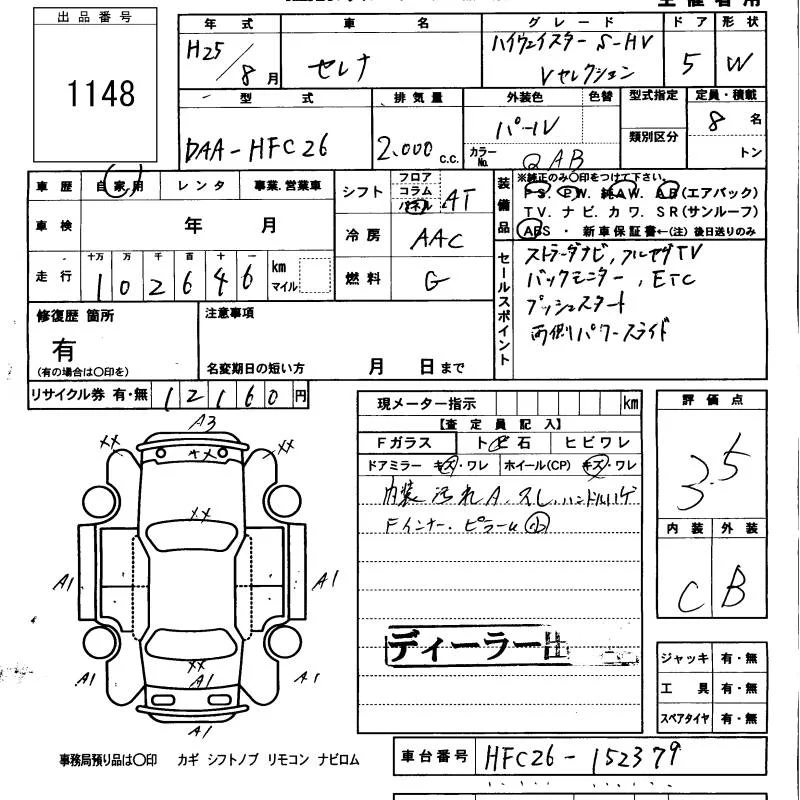 出品番号
1148
年式 車名 グレード ドア 形状
H25/8月 セレナ ハイウェイスター S-HV Vセレクション 5 W
型式 排気量 外装色 色替 型式指定 定員・積載
DAA-HFC26 2.000 c.c. パール 8名
カラーNo. QAB 類別区分 トン
車歴 自家用 レンタ 事業.営業車
車検 年 月
走行 十万 万 千 百 十 一
1 0 2 6 4 6 km マイル
シフト フロア コラム パネル AT
冷房 AAC
燃料 G
装備品
※純正のみ○印をつけて下さい。
P S. P W. 純A W. A B(エアバック)
T V. ナ ビ. カ ワ. S R(サンルーフ)
ABS ・ 新車保証書←(注) 後日送りのみ
セールスポイント
ストラーダナビ, フルセグTV
バックモニター, ETC
プッシュスタート
両側パワースライド
修復歴 箇所
有
(有の場合は○印を)
注意事項
名変期日の短い方 月 日まで
リサイクル券 有・無 12160円
現メーター指示 km
【査定員記入】
Fガラス ト 石 ヒビワレ
ドアミラー キズ・ワレ ホイール(CP) キズ・ワレ
内装 汚れA. スレ. ハンドルハゲ
Fインナー. ピラー
ディーラー出
評価点
3.5
内装 外装
C B
ジャッキ 有・無
工具 有・無
スペアタイヤ 有・無
A3
XX XX
XX
XX
A1 A1
XX
A1 A1 A1
A1
事務局預り品は○印 カギ シフトノブ リモコン ナビロム
車台番号 HFC26-152379